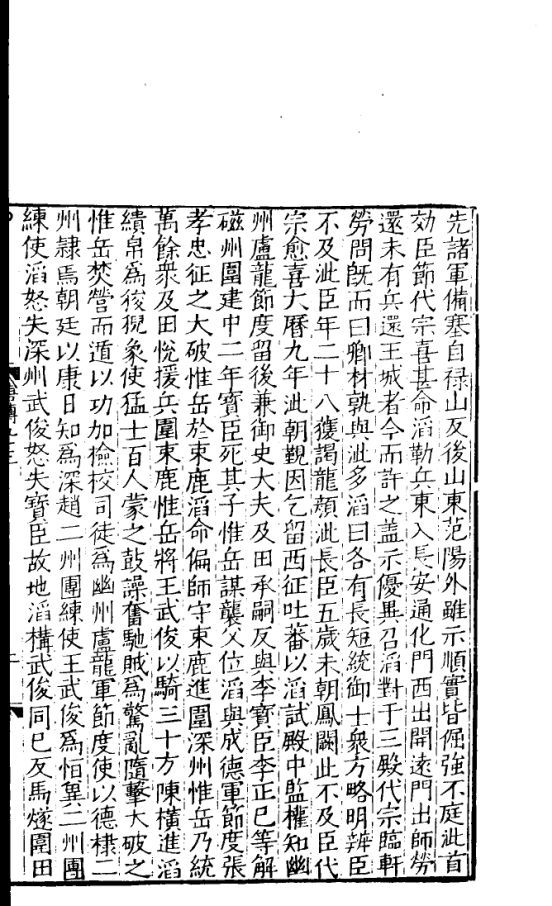 先諸軍備塞自禄山反後山東范陽外雖示順實皆倔強不庭泚首
効臣節代宗喜甚命滔勒兵東入長安通化門西出開遠門出師勞
還未有兵還王城者今而許之盖示優異召滔對于三殿代宗臨軒
勞問旣而曰卿材孰與泚多滔曰各有長短統御士衆方略明辨臣
不及泚臣年二十八獲謁龍顔泚長臣五歲未朝鳳闕此不及臣代
宗愈喜大曆九年泚朝覲因乞留西征吐蕃以滔試殿中監權知幽
州盧龍節度留後兼御史大夫及田承嗣反與李寶臣李正巳等解
磁州圍建中二年寶臣死其子惟岳謀襲父位滔與成德軍節度張
孝忠征之大破惟岳於束鹿滔命偏師守束鹿進圍深州惟岳乃統
萬餘衆及田恱援兵圍束鹿惟岳將王武俊以騎三十方陳橫進滔
繢帛爲狻猊象使猛士百人蒙之鼓譟奮馳賊爲驚亂隨擊大破之
惟岳焚營而遁以功加檢校司徒爲幽州盧龍軍節度使以德棣二
州隷焉朝廷以康日知爲深趙二州團練使王武俊爲恒兾二州團
練使滔怒失深州武俊怒失寶臣故地滔構武俊同巳反馬燧圍田